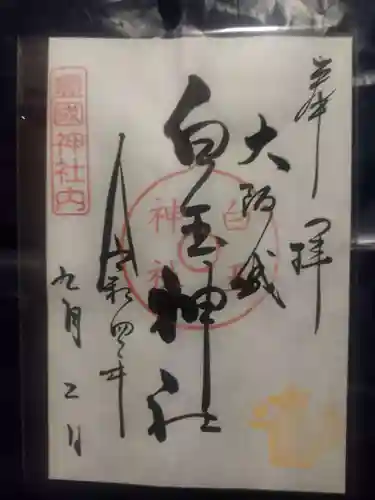 奉拝
大阪城
白玉神社
令和四年
九月二日
豊國神社内
白玉神社